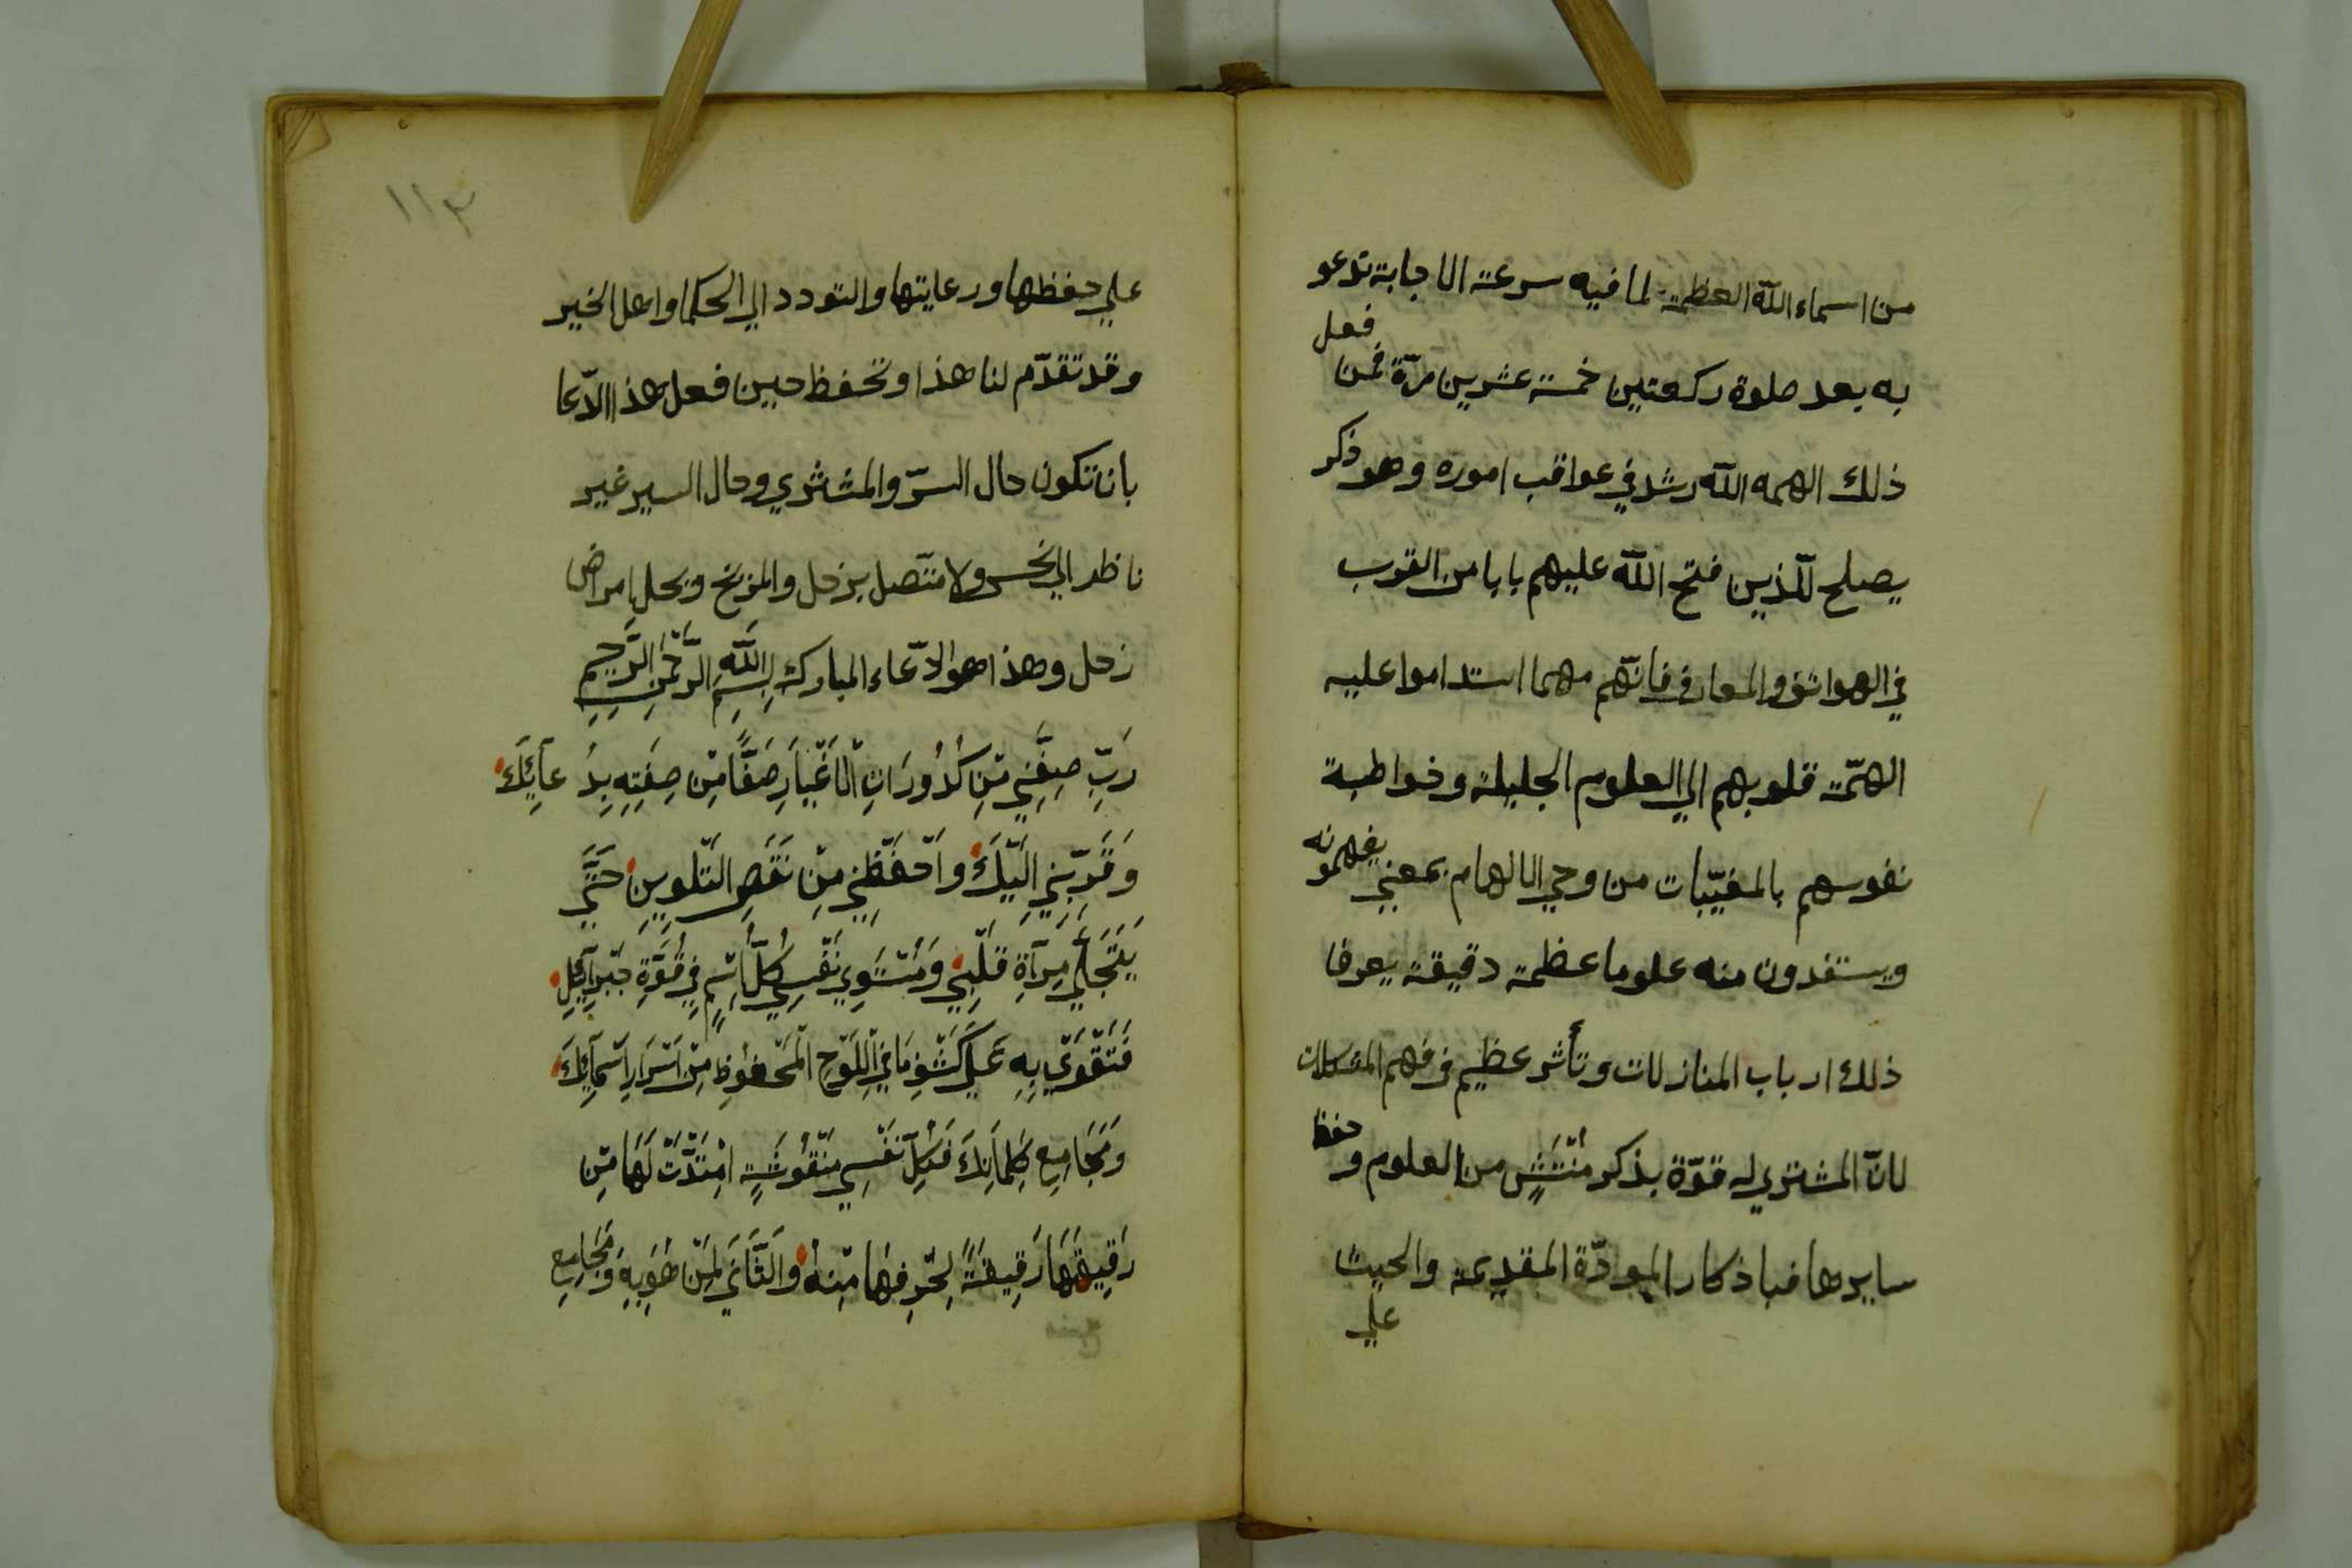 من اسماء الله العظمة لما فيه سرعة الاجابة تدعو
به بعد صلوة ركعتين خمسة عشرين مرّة فمن فعل
ذلك الهمه الله رشد في عواقب اموره وهو ذكر
يصلح للذين فتح الله عليهم بابا من القرب
في الهواتف والمعارف فانّهم مهما استداموا عليه
الهمّت قلوبهم الي العلوم الجليلة وخواطبة
نفوسهم بالمغيّبات من وحي الالهام بمعني يفهمونه
ويستفدون منه علوما عظمة دقيقة يعرفا
ذلك ارباب المنازلات وتأثر عظيم في فهم المشكلات
لانّ المشتري له قوّة بذكر من العلوم وحفظ
سايرها فباذكار الموادّة المقديمة والحيث
علي
١١٣
علي حفظها ورعايتها والتودد الي الحكما واهل الخير
وقد تقدّم لنا هذا وتحفظ حين فعل هذا الدّعا
بان تكون حال السرّ والمشتري وحال السير غير
ناظر الي نحس ولا متّصل بزحل والمريخ ويحل امراض
زحل وهذا هو الدّعاء المبارك بِسْمِ اللَّهِ الرَّحْمٰنِ الرَّحِيمِ
رَبِّ صِفِّنِي مِّنْ كُدُورَاتِ الْاَغْيَارِ صَفًّا مِّنْ صِفَتِهِ بِدُ عَآئِكَ
وَقَرِّبْنِي اِلَيْكَ وَاحْفَظْنِي مِنْ نَقَصِ التَّلْوِينِ حَتَّي
يَتَجَلَّي مِرآةِ قَلْبِي وَمُسْتَوِي نَفْسِي كُلّ اسْمٍ فِي قُوَّةِ جَبْرآئِيلَ
فَتَقْوَي بِهِ عَلَي كَشْفِ مَا فِي اللَّوْحِ الْمَحْفُوظِ مِنْ اَسْرَارِ اَسْمَآئِكَ
وَمَجَامِعِ كَلِمَاتِكَ فَكُلّ نَفْسٍ مَنْقُوشَةٍ امْتَدَّتْ لَهَا مِنْ
رَقِيقَهَا رَقِيقَةً لِحَرْفِهَا مِنْهُ وَالثَّانِي لِمَنْ هُوَ بِهِ وَمَجَامِعِ